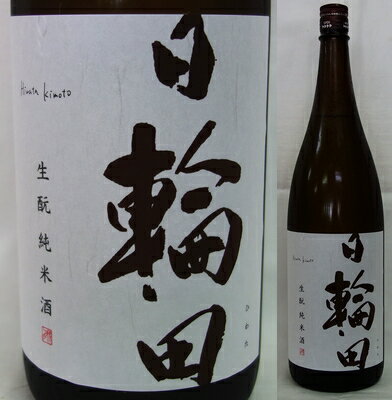 日輪田
Hiwata Kimoto
生酛純米酒
ひわた
日輪田
生酛純米酒